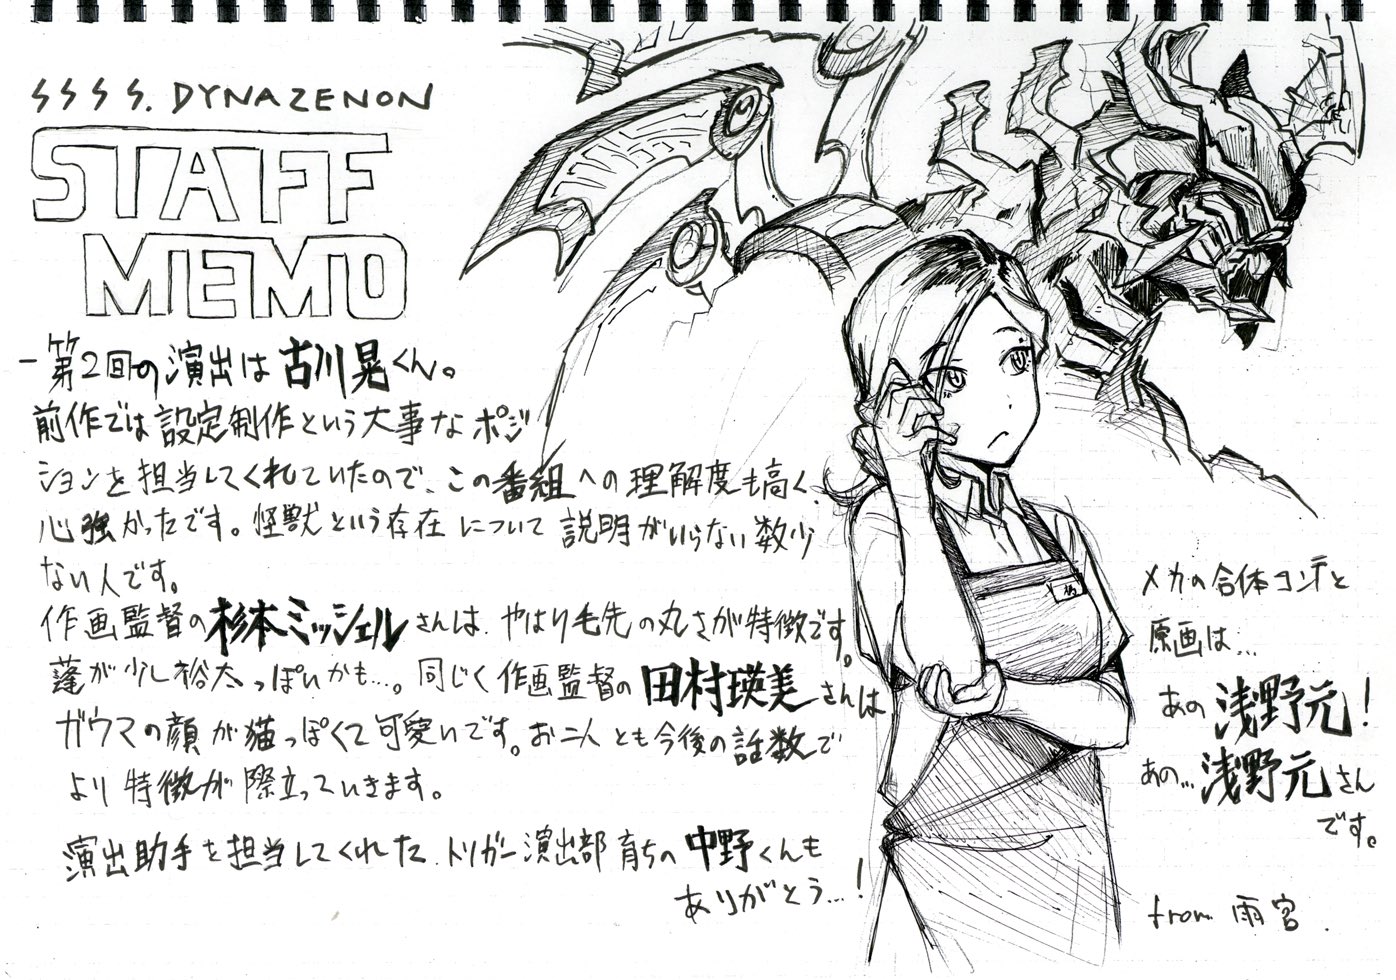 SSSS. DYNAZENON
STAFF
MEMO
－第2回の演出は古川晃くん。
前作では設定制作という大事なポジ
ションを担当してくれていたので、この番組への理解度も高く、
心強かったです。怪獣という存在について説明がいらない数少
ない人です。
作画監督の杉本ミッシェルさんは、やはり毛先の丸さが特徴です。
蓬が少し裕太っぽいかも…。同じく作画監督の田村瑛美さんは
ガウマの顔が猫っぽくて可愛いです。お二人とも今後の話数で
より特徴が際立っていきます。
演出助手を担当してくれた、トリガー演出部育ちの中野くんも
ありがとう…！
メカの合体コンテと
原画は…
あの浅野元！
あの…浅野元さん
です。
from 雨宮.